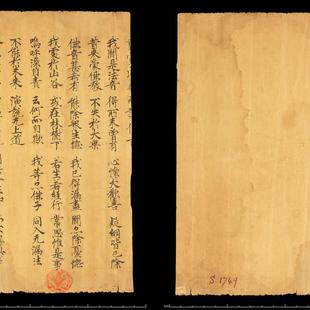 我聞是法音 得所未曾有 心懷大歡喜 疑網皆已除
昔來蒙佛教 不失於大乘
佛音甚希有 能除衆生惱 我已得漏盡 聞亦除憂惱
我處於山谷 或在林樹下 若坐若經行 常思惟是事
嗚呼深自責 云何而自欺 我等亦佛子 同入无漏法
不能於未來 演說无上道
S 1749